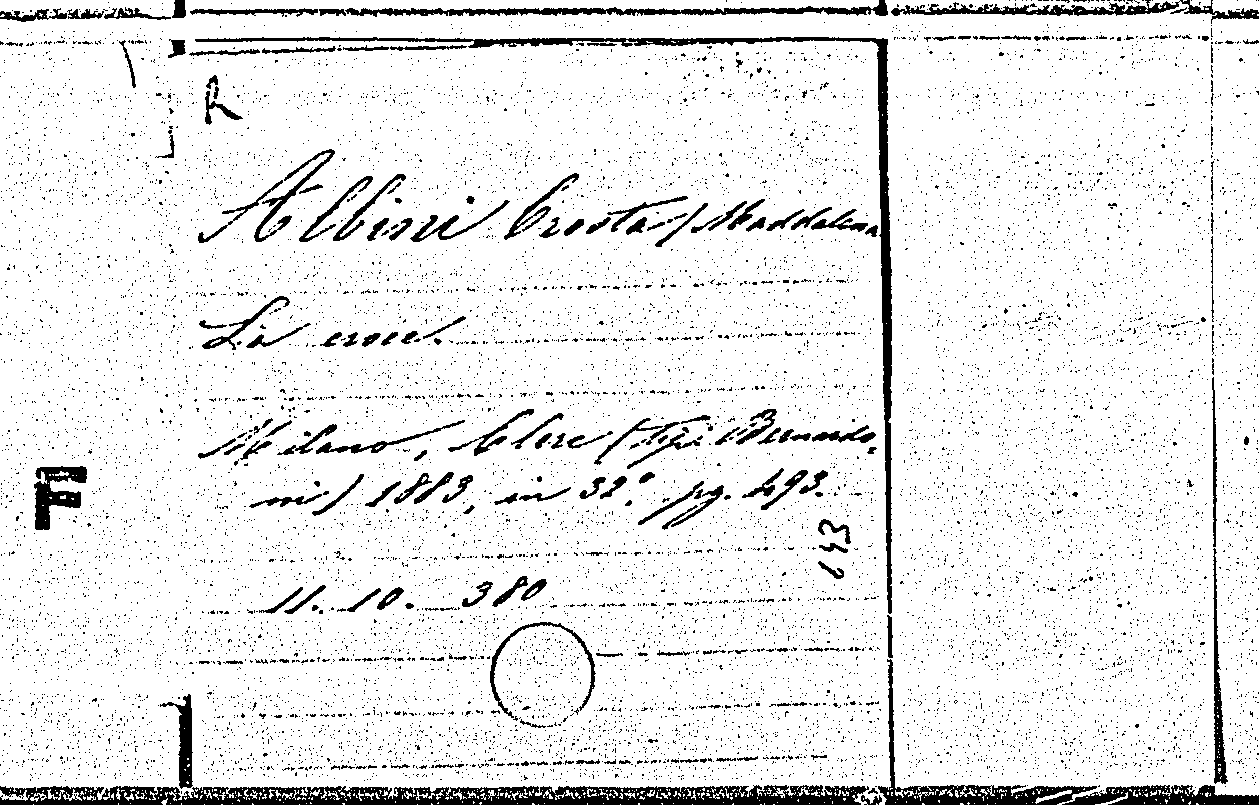 R
Albini Crosta / Maddalena
La croce.
Milano, Clerc (tip. Bernardo,
ni) 1883, in 32º. pg. 493.
143
11. 10. 380
F